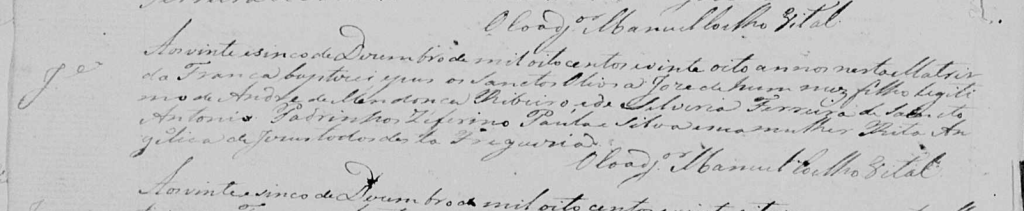 O Coadj.or Manuel Coelho Vital.
Je
Aos vinte e sinco de Dezembro de mil oito centos e vinte oito annos nesta Matriz
da Franca baptizei e pus os Sanctos Olios a Joze de hum mez filho legiti
mo de Andre de Mendonca Ribeiro e de Silveria Ferreira de Santo
Antonio Padrinhos Zeferino Paula e Silva e sua mulher Rita An
gelica de Jesus todos desta Freguezia.
O Coadj.or Manuel Coelho Vital.
Aos vinte e sinco de Dezembro de mil oito centos e vinte oito annos nesta